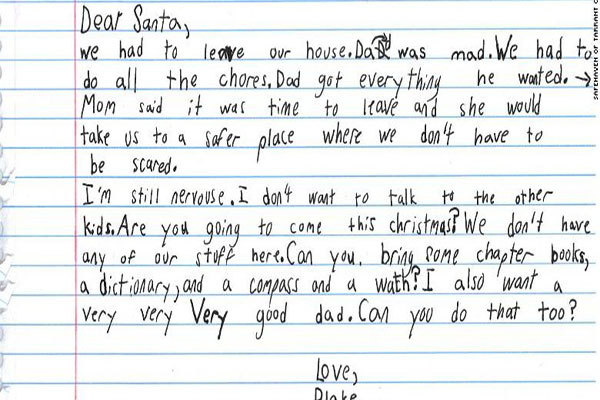 Dear Santa,
we had to leave our house. Dad was mad. We had to
do all the chores. Dad got everything he wanted. →
Mom said it was time to leave and she would
take us to a safer place where we don't have to
be scared.
I'm still nervouse. I don't want to talk to the other
kids. Are you going to come this christmas? We don't have
any of our stuff here. Can you bring some chapter books,
a dictionary, and a compass and a wath? I also want a
very very Very good dad. Can you do that too?
Love,
Blake